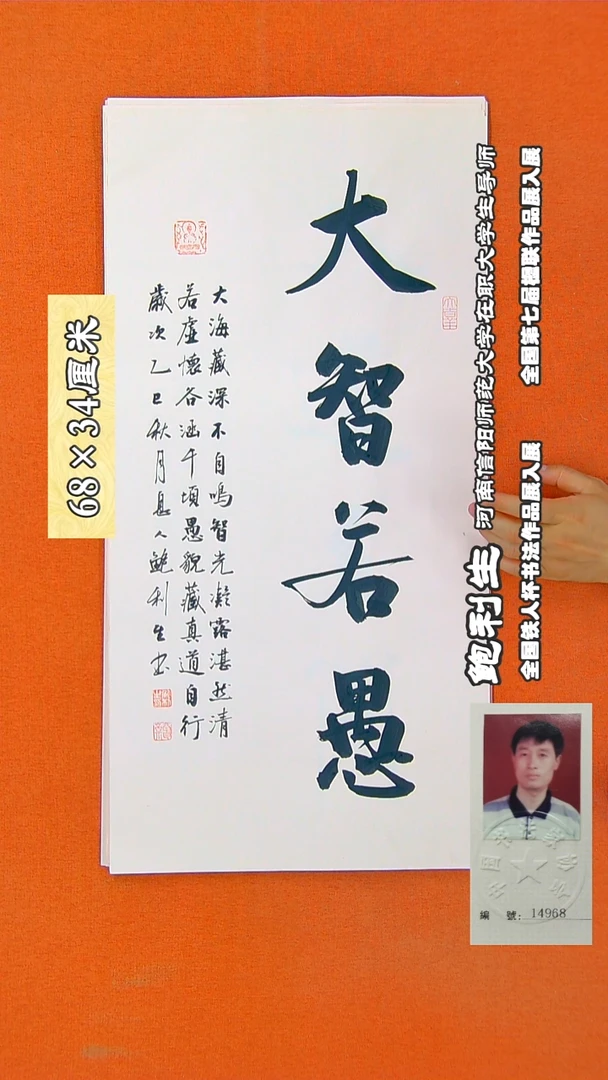 大智若愚
大海藏深不自鸣智光凝露湛然清
若虚怀谷涵千顷愚貌藏真道自行
岁次乙巳秋月息人鲍利生书
68×34厘米
鲍利生
河南信阳师范大学在职大学生导师
全国铁人杯书法作品展入展
全国第七届楹联作品展入展
編 號：14968